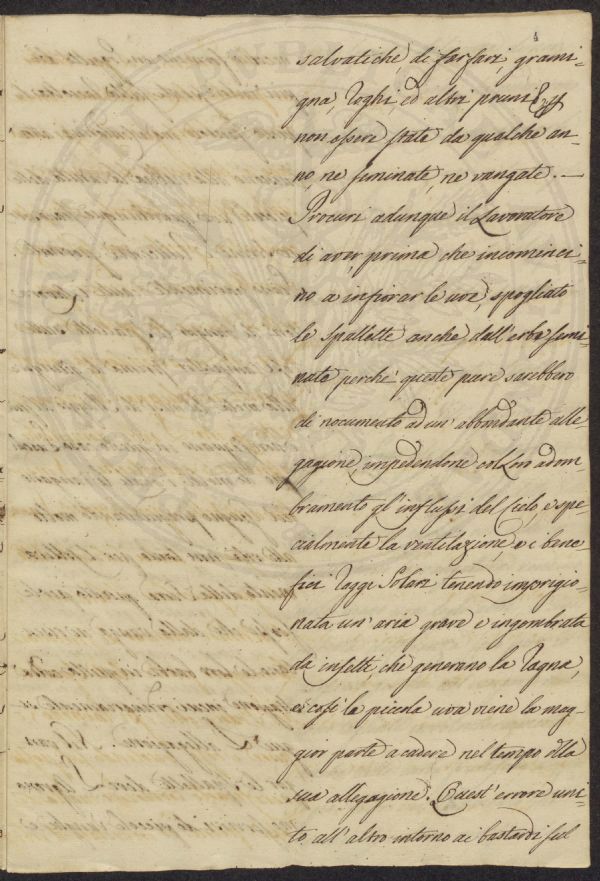 salvatiche, di farfari, grami-
gna, Roghi, ed altri pruni
non essere state da qualche an-
no, ne seminate, ne vangate. —
Procuri adunque il Lavoratore
di aver, prima che incominci-
no a infiorar le uve, spogliato
le spallette anche dall'erbe semi-
nate perché queste pure sarebbero
di nocumento ad un' abbondante alle-
gagione, impedendone col Loro adom-
bramento gl'influssi del Cielo, e spe-
cialmente la ventilazione, e i bene-
fici Raggi Solari tenendo imprigio-
nata un'aria grave e ingombrata
da insetti, che generano la Ragna,
e così la piccola uva viene la mag-
gior parte a cadere nel tempo della
sua allegagione. Quest'errore uni-
to all'altro intorno ai bastardi sul